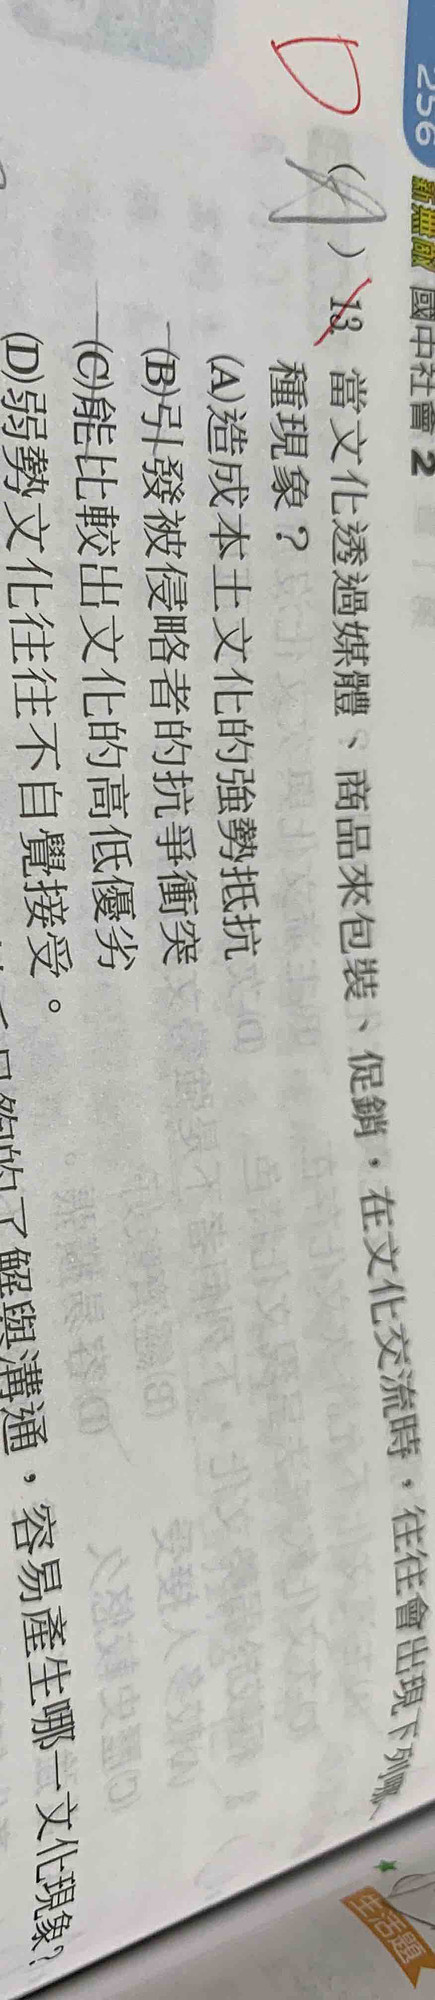 256 新無敵 國中社會 2
D
(A) 13. 當文化透過媒體、商品來包裝、促銷,在文化交流時,往往會出現下列哪一
種現象?
(A)造成本土文化的強勢抵抗
(B)引發被侵略者的抗爭衝突
(C)能比較出文化的高低優劣
(D)弱勢文化往往不自覺接受。
的了解與溝通,容易產生哪一文化現象?
生活題